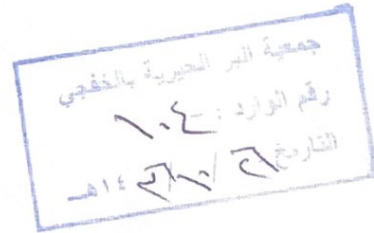 جمعية البر الخيرية بالخفجي
رقم الوارد : ١٠٤
التاريخ / ١٠ / ١٤هـ